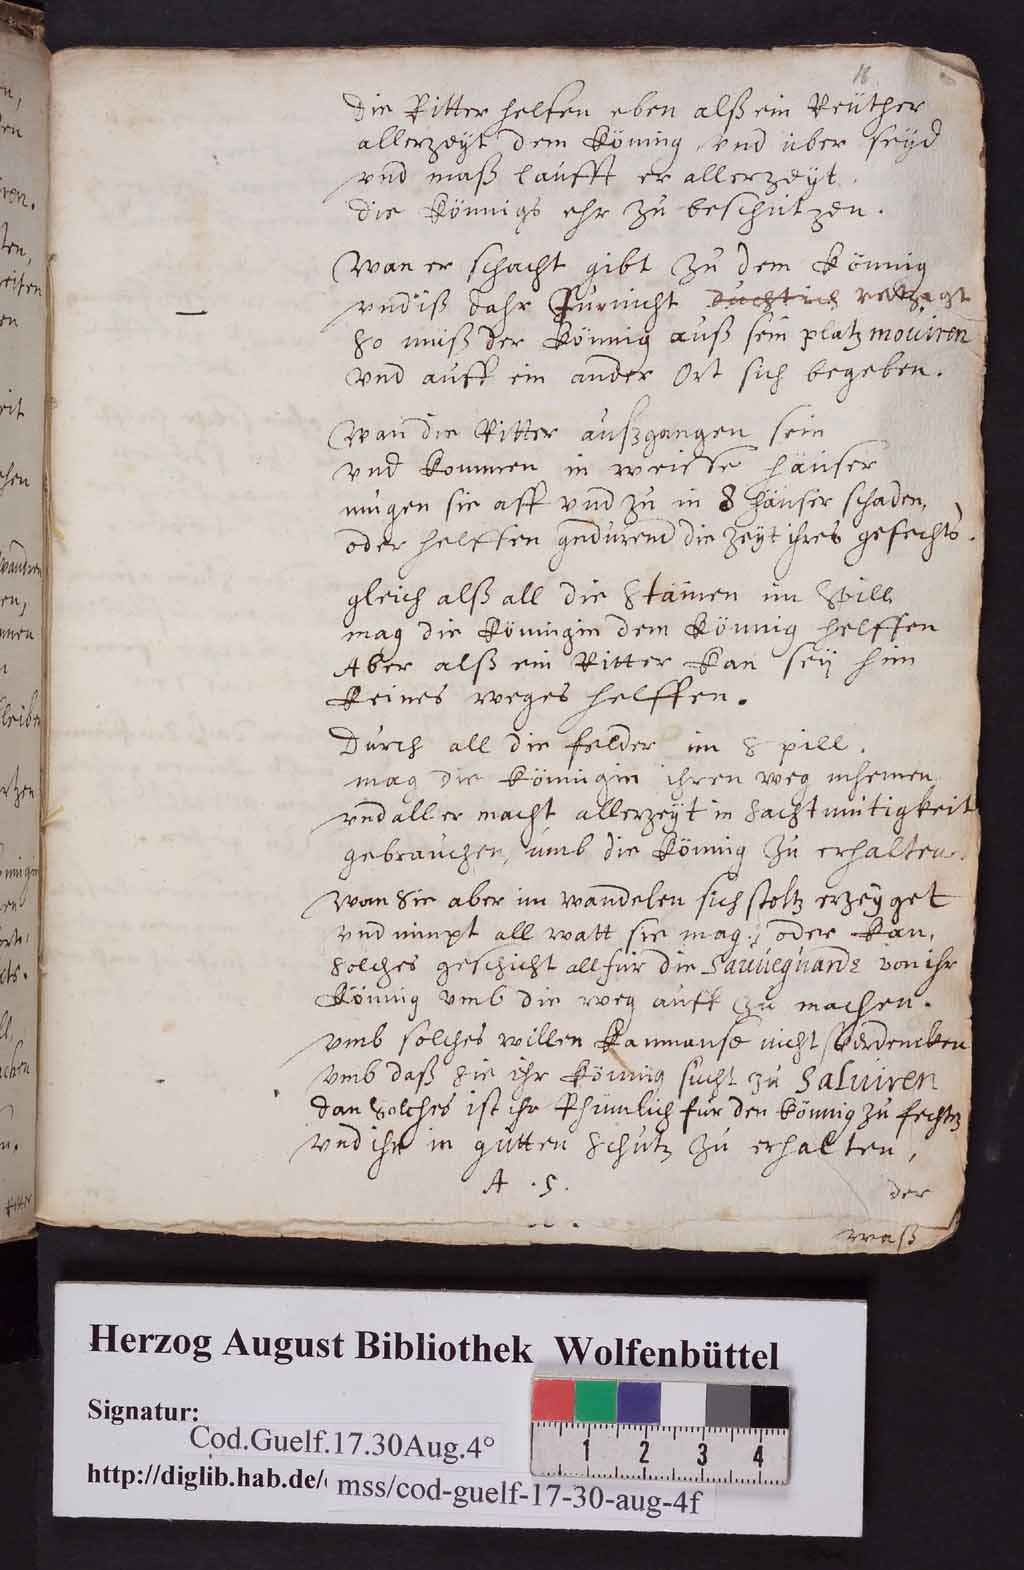 16
Die Ritter helfen eben alß ein Reüther
allerzeyt dem König, vnd über seyd
vnd maß laufft er allerzeyt.
die Königs ehr zu beschützen.
Wan er schacht gibt zu dem König
vnd iß dahr für nicht
so muß der König auß sein platz moviren
vnd auff ein ander Ort sich begeben.
Wan die Ritter außgangen sein
vnd kommen in weisse häuser
mügen sie aff vnd zu in 8 häuser schaden,
oder helffen gedurend die zeyt ihres gefechts.
gleich alß all die Steinen im Spill
mag die Königin dem König helffen
Aber alß ein Ritter kan sey him
keines weges helffen.
Durch all die felder im Spill.
mag die Königin ihren weg nhemen
vnd all er macht allerzeyt in sachtmütigkeit
gebrauchen, umb die König zu erhalten.
Wan sie aber im wandelen sich stoltz erzeyget
vnd nimpt all watt sie mag, oder kan,
solches geschicht all für die Sauveguarde von ihr
König vmb die weg auff zu machen.
vmb solches willen kanmanse nicht verdencken
vmb daß sie ihr König sucht zu Salviren
dan solches ist ihr Rhümlich für den König zu fechten
vnd ihn in gutten schutz zu erhalten,
A . 5.
der
waß
Herzog August Bibliothek Wolfenbüttel
Signatur:
Cod.Guelf.17.30Aug.4°
http://diglib.hab.de/
mss/cod-guelf-17-30-aug-4f
1 2 3 4